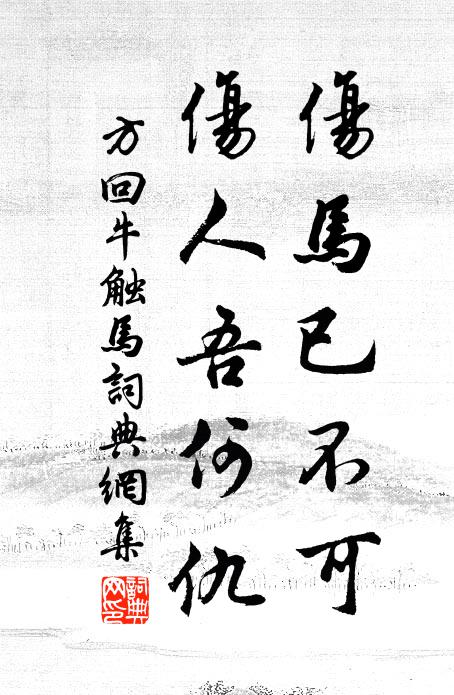 傷馬已不可
傷人吾何仇
方回牛触馬詞典網集
詞典
网印